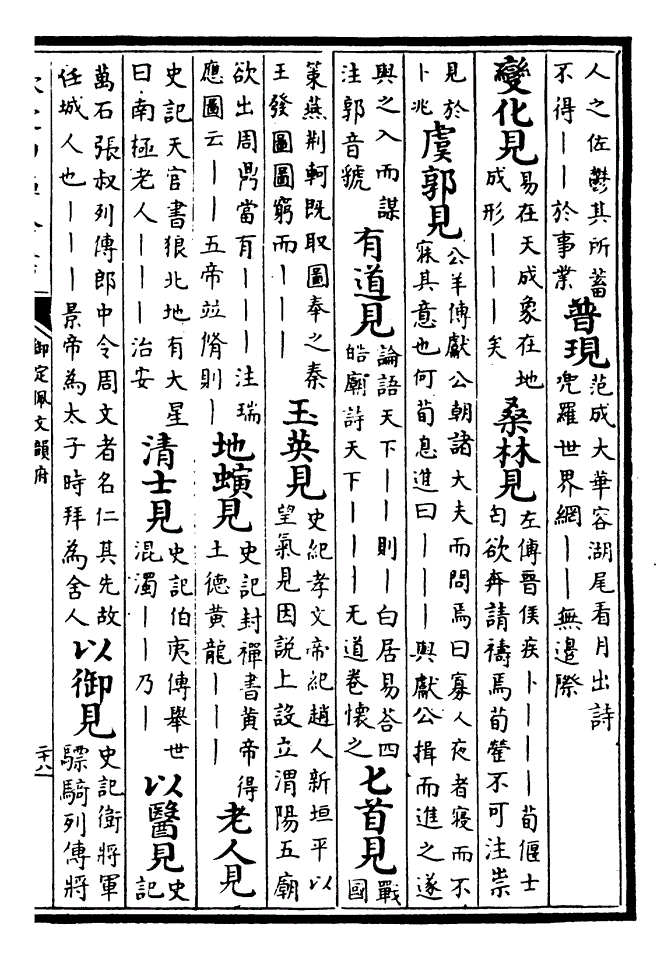 人之佐鬱其所蓄
不得｜｜於事業
普現
范成大華容湖尾看月出詩
兜羅世界網｜｜無邊際
變化見
易在天成象在地
成形｜｜｜矣
桑林見
左傳晉侯疾卜｜｜｜荀偃士
匄欲奔請禱焉荀罃不可注祟
見於
卜兆
虞郭見
公羊傳獻公朝諸大夫而問焉曰寡人夜者寢而不
寐其意也何荀息進曰｜｜｜｜與獻公揖而進之遂
與之入而謀
注郭音虢
有道見
論語天下｜｜則｜白居易荅四
皓廟詩天下｜｜｜无道卷懷之
匕首見
戰
國
策燕荆軻既取圖奉之秦
王發圖圖窮而｜｜｜
玉英見
史紀孝文帝紀趙人新垣平以
望氣見因說上設立渭陽五廟
欲出周鼎當有｜｜｜注瑞
應圖云｜｜五帝竝脩則｜
地螾見
史記封禪書黄帝得
土德黄龍｜｜｜
老人見
史記天官書狼北地有大星
曰南極老人｜｜｜治安
清士見
史記伯夷傳舉世
混濁｜｜乃｜
以醫見
史
記
萬石張叔列傳郎中令周文者名仁其先故
任城人也｜｜｜景帝為太子時拜為舍人
以御見
史記衛將軍
驃騎列傳將
御定佩文韻府
二十八